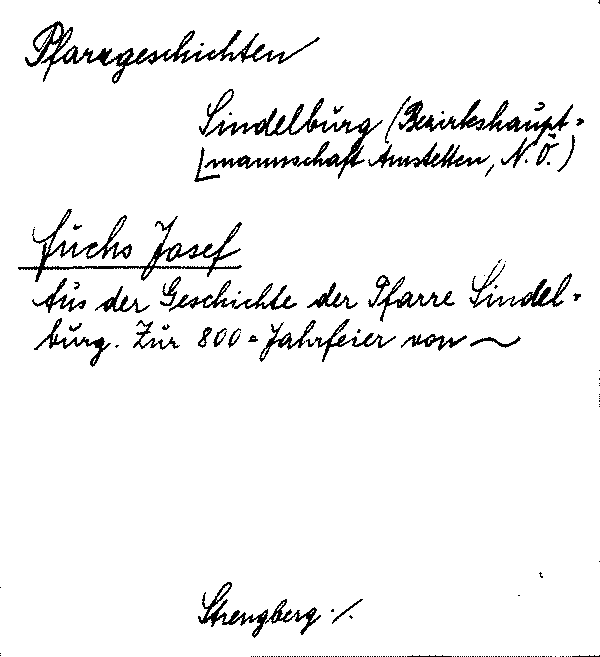 Pfarrgeschichten
Sindelburg (Bezirkshaupt-
mannschaft Amstetten, N.Ö.)
Fuchs Josef
Aus der Geschichte der Pfarre Sindel-
burg. Zur 800-Jahrfeier von ~
Strengberg ./.